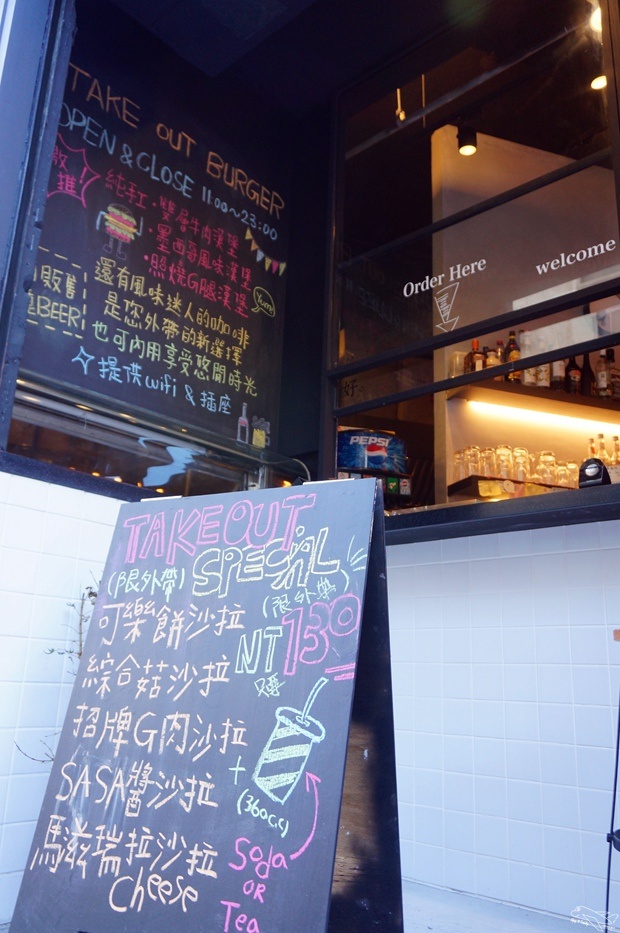 TAKE OUT BURGER
OPEN & CLOSE 11:00~23:00
激推!
純釭·雙層牛肉漢堡
·墨西哥風味漢堡
·照燒G腿漢堡
Yum!
還有風味迷人的咖啡
是您外帶的新選擇
也可內用享受悠閒時光
販售
BEER!
提供wifi & 插座
Order Here
welcome
PEPSI
TAKEOUT
SPECIAL
(限外帶)
(限外帶)
可樂餅沙拉
NT 130
只要
綜合菇沙拉
招牌G肉沙拉
+
(360c.c)
SASA醬沙拉
馬滋瑞拉沙拉
Cheese
Soda
OR
Tea